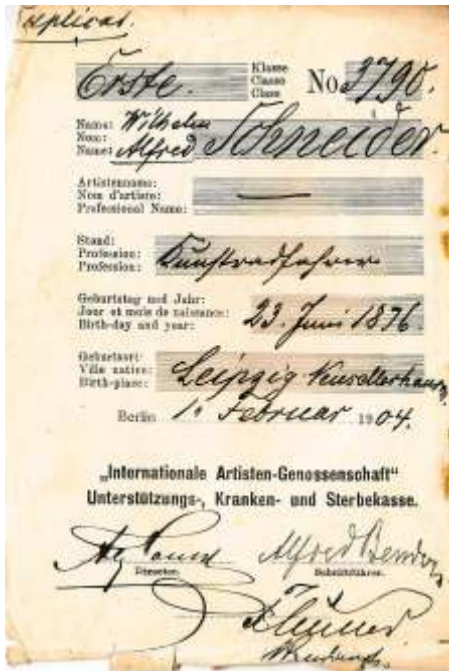 Duplicat.
Erste. Klasse
Classe
Class No 3790.
Name: Wilhelm
Nom:
Name: Alfred Schneider.
Artistenname:
Nom d'artiste:
Professional Name: —
Stand:
Profession:
Profession: Kunstradfahrer
Geburtstag und Jahr:
Jour et mois de naissance:
Birth-day and year: 23. Juni 1876.
Geburtsort:
Ville native:
Birth-place: Leipzig Neusellerhausen
Berlin 1. Februar 1904.
„Internationale Artisten-Genossenschaft"
Unterstützungs-, Kranken- und Sterbekasse.
Alfred Bender
Director. Schriftführer.